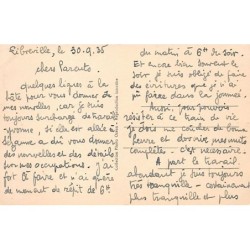 Libreville, le 30.9.35
chers Parents,
quelques lignes à la
hâte pour vous donner de
mes nouvelles, car je suis
toujours surchargé de travail
comme, si elle est allée à
a dû vous donner
des nouvelles et des détails
sur mes occupations. J'ai
fort à faire et je n'ai guère
de moment de répit de 6h
du matin à 6h du soir.
Et encore bien souvent le
soir, je suis obligé de faire
des écritures que je n'ai
pu faire dans la journée.
Aussi, pour pouvoir
résister à ce train de vie
je dois me coucher de bonne
heure et dormir
complètes - c'est nécessaire.
A part le travail,
abondant, je suis toujours
très tranquille - certainement
plus tranquille et plus